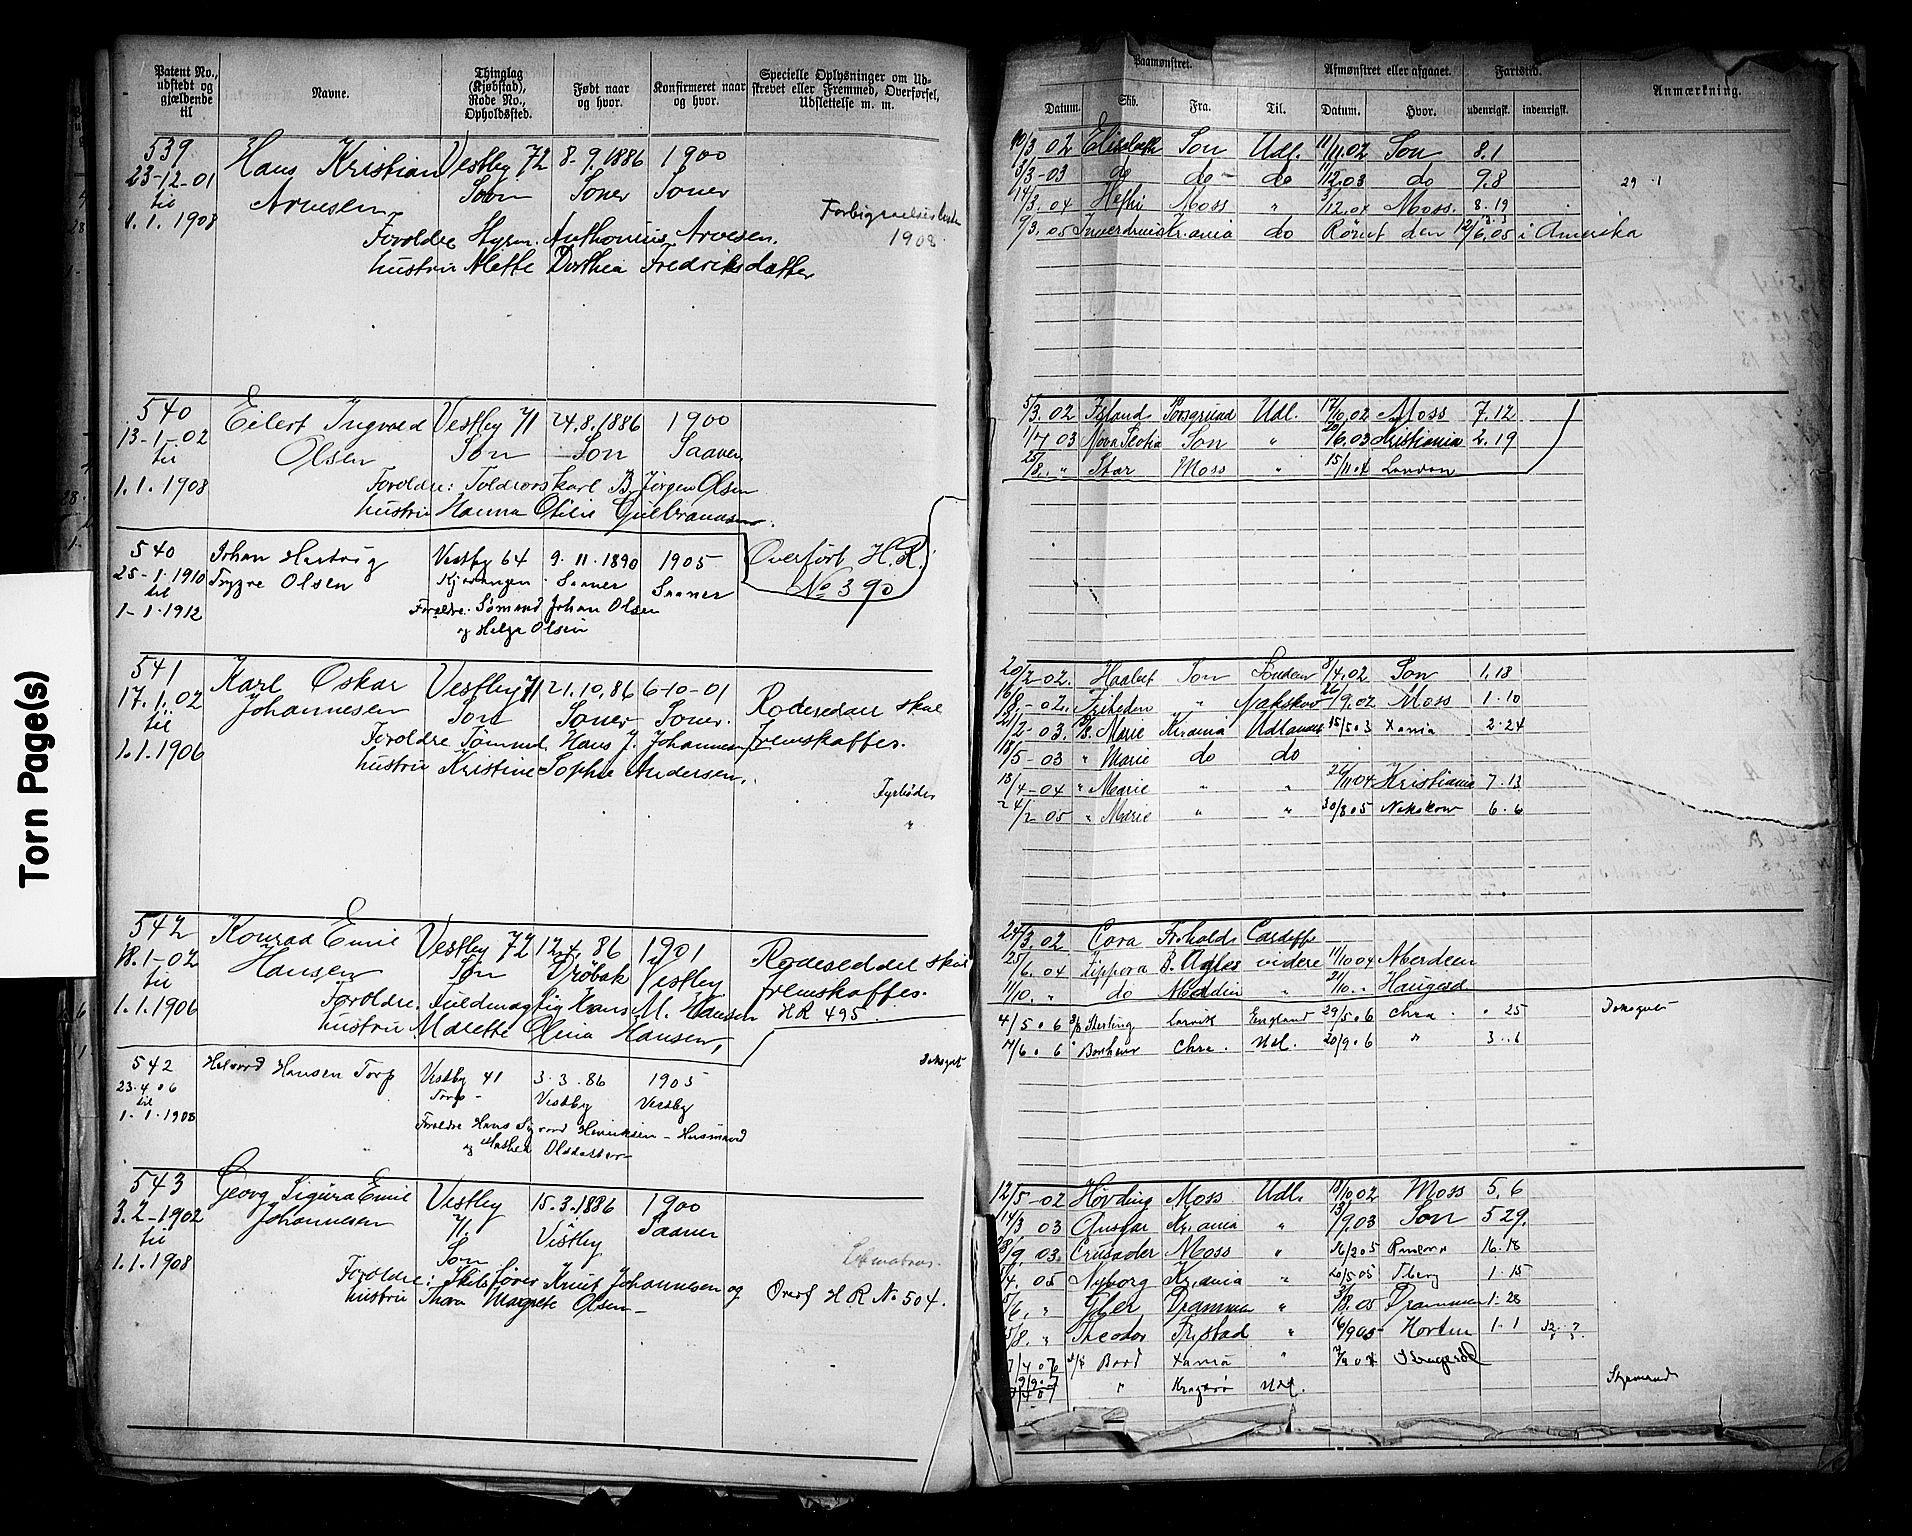 Torn Page(s)
Patent No., udstedt og gjældende til
Navne.
Thinglag (Kjøbstad), Rode No., Opholdssted.
Født naar og hvor.
Konfirmeret naar og hvor.
Specielle Oplysninger om Udskrevet eller Fremmed, Overførsel, Udslettelse m. m.
539 Hans Kristian Vestby 72 8-9.1886 1900
23-12-01 Arnesen Soner Soner
til
1.1.1908
Forældre Anthonius
hustru Mette Dorthea Fredriksdatter
1908
540 Eilert Ingvald Vestby 71 24.8.1886 1900
13-1-02 Olsen Son Son Saaner
til
1.1.1908 Forældre: B. Jørgen Olsen
hustru Hanna Otilie Gulbrandsen
540 Johan Hartvig Vestby 64 9.11.1890 1905 Overført H.R.
25-1-1910 Trygve Olsen Kjøvangen Saaner Saaner No 390
til
1-1-1912 Forældre: Sømand Johan Olsen
og Helga Olsen
541 Karl Oskar Vestby 71 21.10.86 6-10-01 Rodeseddel skal
17.1.02 Johannesen Son Soner Soner. fremskaffes.
til
1.1.1906 Forældre Sømand Hans J. Johannesen
hustru Kristine Sophie Andersen.
Fyrbøder
"
542 Konrad Emil Vestby 72 12.4.86 1901 Rodeseddel skal
18.1-02 Hansen Son Drøbak Vestby fremskaffes.
til
1.1.1906 Forældre Hans M. Hansen HR 495
hustru Marette Olina Hansen,
542 Halvord Hansen Torp Vestby 41 3.3.86 1905
23.4.06 Torp Vestby Vestby
til
1-1-1908 Forældre Hans Henriksen - Husmand
og Olsdatter
543 Georg Sigurd Emil Vestby 15.3.1886 1900
3.2-1902 Johannesen 71. Vestby Saaner
til Son
1.1.1908
Forældre: Skibsfører Knut Johannesen og
hustru Thora Margrete Olsen Overf HR No 504.
Paamønstret.
Afmønstret eller afgaaet.
Fartstid.
Anmærkning.
Datum. Skib. Fra. Til. Datum. Hvor. udenrigsk. indenrigsk.
10/3 02 Elisabeth Son Udl. 11/11.02 Son 8.1
3/3-03 do do do 1/12.03 do 9.8
14/3.04 Moss " 3/12.04 Moss. 8.19
9/3.05 Kr.ania do Rømt den 12/6.05 i Amerika
5/3.02 Island Porsgrund Udl. 17/10.02 Moss 7.12
1/7 03 Nova Scotia Son " 20/6.03 Kristiania 2.19
25/8. " Star Moss " 15/11.04 London
20/2-02. Haabet Son 8/4.02 Son 1.18
16/8-02. Friheden " Nakskov 26/9.02 Moss 1.10
21/2-03. Marie Kr.ania Udlandet 15/5 03 Xania 2.24
18/5-03 " Marie do do
18/4-04 " Marie " " 26/11 04 Kristiania 7.13
24/2 05 " Marie " " 30/8 05 Nakskow 6.6
24/3.02 Cora Cardiff
25/6.04 Zippora videre 11/10 04 Aberdeen
11/10. " do " 21/10. "
4/5.06 Sterling Larvik England 29/5.06 Chra. " 25
7/6.06 Chra. Udl. 20/9.06 " 3..6
12/5-02 Høvding Moss Udl. 18/10 02 Moss 5.6
14/3 03 Ansgar Kr.ania " 13/9.03 Son 5 29.
18/9.03. Crusader Moss " 16/2 05 16.18
4. 05 Nyborg Kr.ania " 20/5 05 Tberg 1.15
5/6. " Gler Drammen " 3/8.05 Drammen 1.28
15/8. " Theodor Frstad " 16/9 05 Horten 1.1
7/4 06 Xania "
" Kragerø Udl.
Styrmand